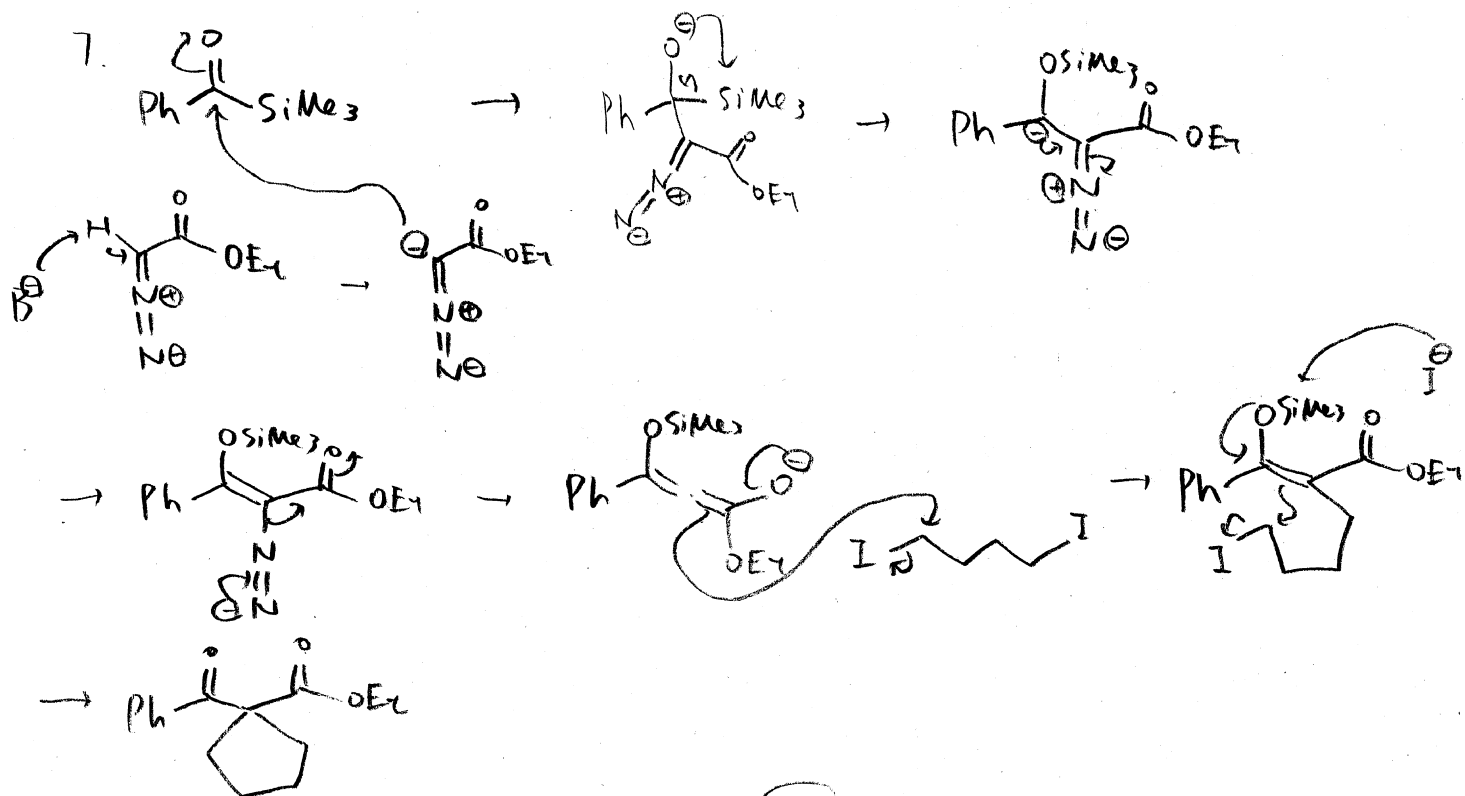 7.
O
Ph SiMe3
O⊖
Ph S SiMe3
O
N⊕ OEt
N⊖
OSiMe3 O
Ph ⊖ OEt
⊕N
N⊖
H O
B⊖ OEt
N⊕
N⊖
O
⊖ OEt
N⊕
N⊖
OSiMe3 O
Ph OEt
N
⊖N
OSiMe3 ⊖
Ph O
OEt
I I
I⊖
OSiMe3 O
Ph OEt
I
O O
Ph OEt